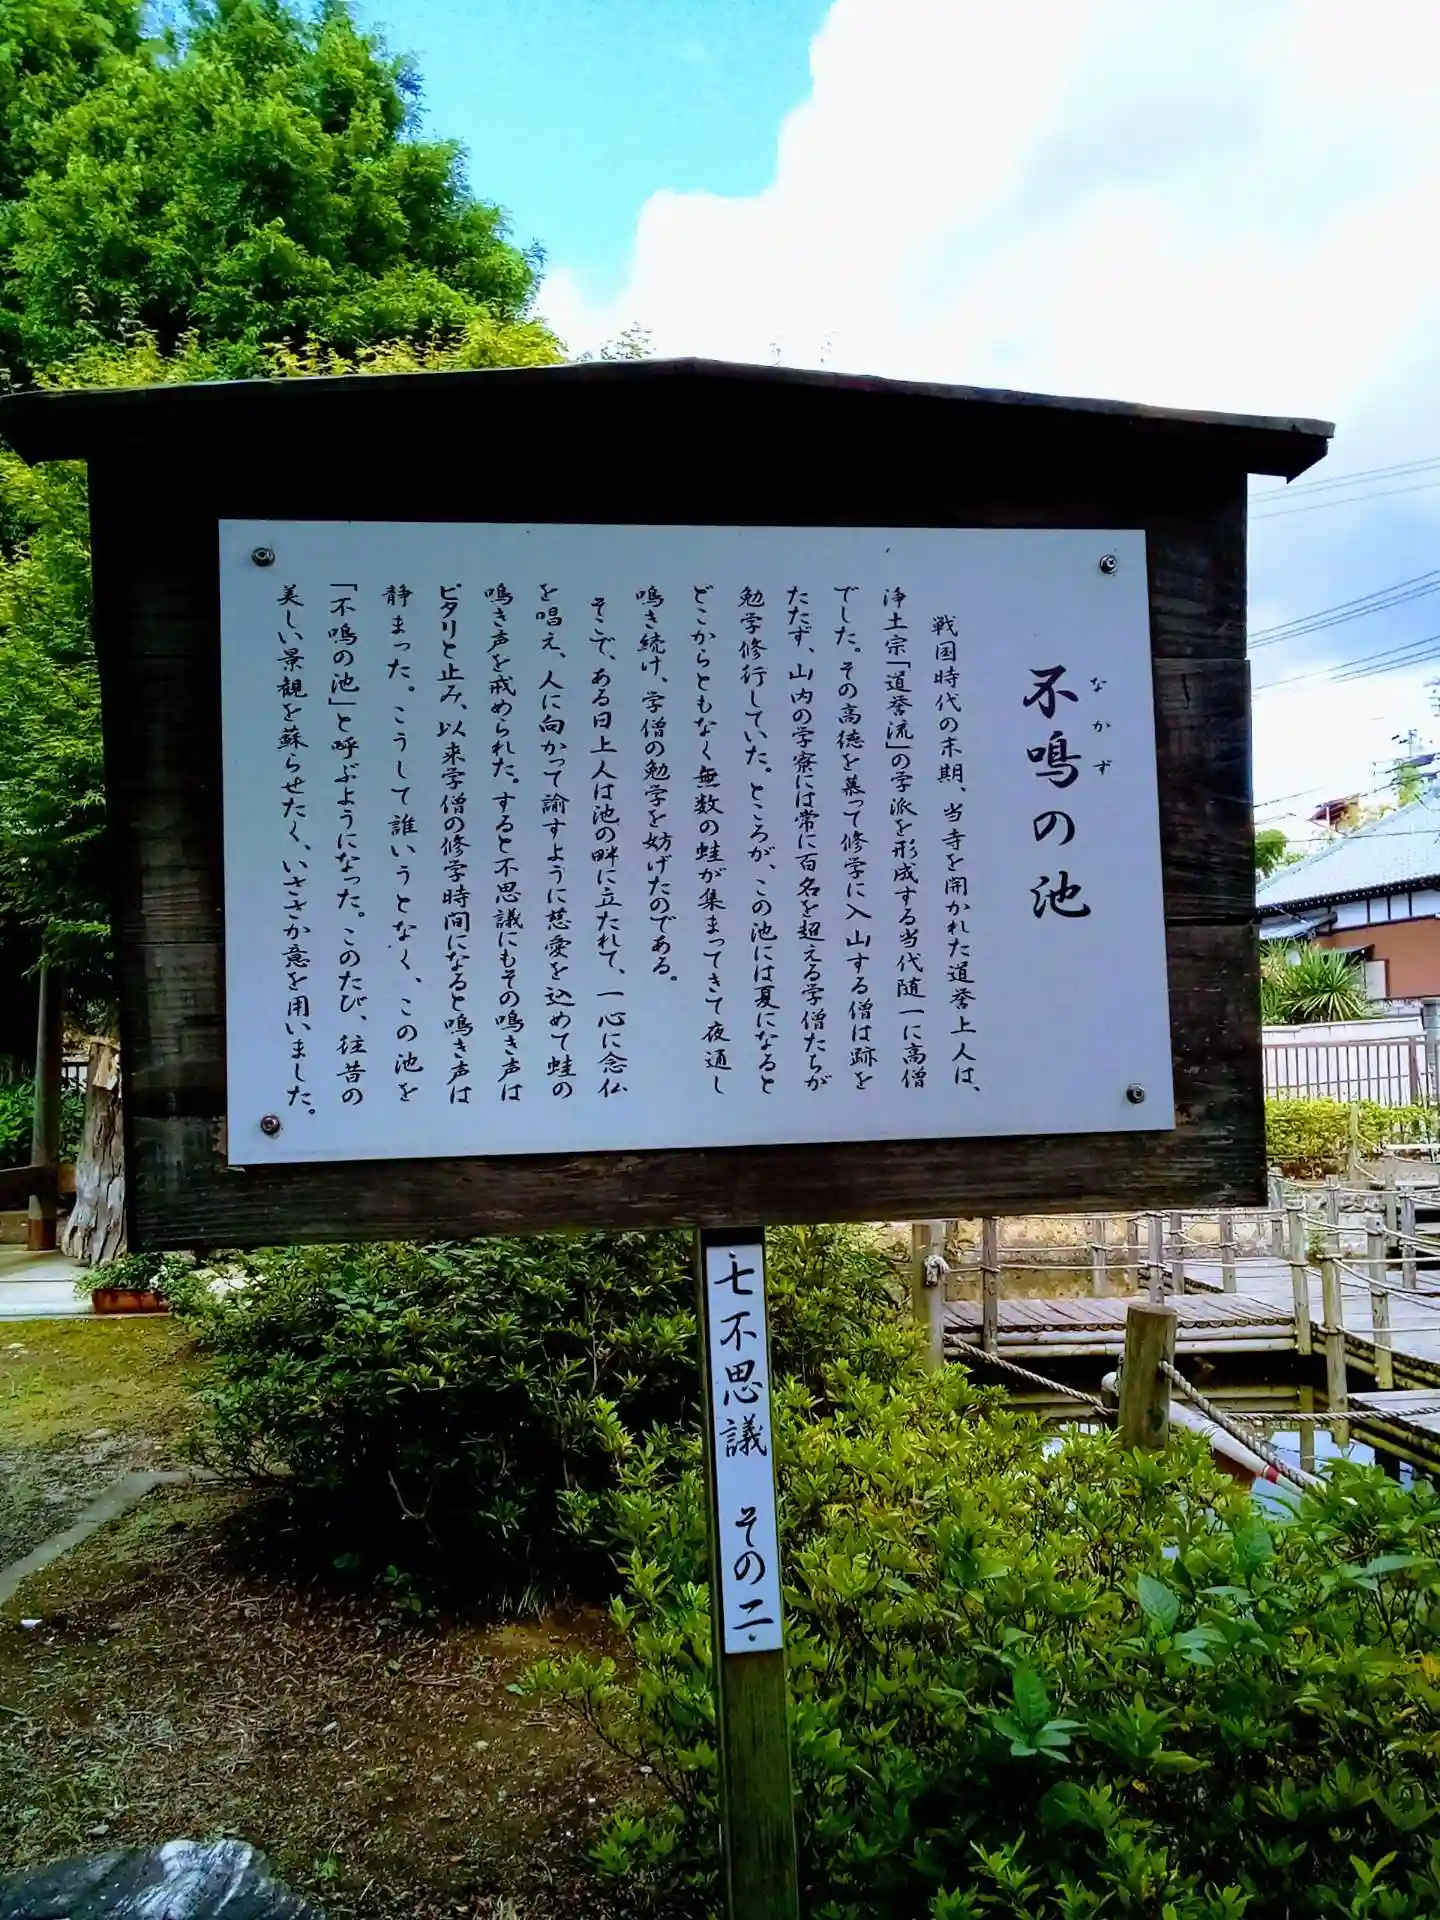 不鳴の池
なかず
戦国時代の末期、当寺を開かれた道誉上人は、
浄土宗「道誉流」の学派を形成する当代随一に高僧
でした。その高徳を慕って修学に入山する僧は跡を
たたず、山内の学寮には常に百名を超える学僧たちが
勉学修行していた。ところが、この池には夏になると
どこからともなく無数の蛙が集まってきて夜通し
鳴き続け、学僧の勉学を妨げたのである。
そこで、ある日上人は池の畔に立たれて、一心に念仏
を唱え、人に向かって諭すように慈愛を込めて蛙の
鳴き声を戒められた。すると不思議にもその鳴き声は
ピタリと止み、以来学僧の修学時間になると鳴き声は
静まった。こうして誰いうとなく、この池を
「不鳴の池」と呼ぶようになった。このたび、往昔の
美しい景観を蘇らせたく、いささか意を用いました。
七不思議 その二